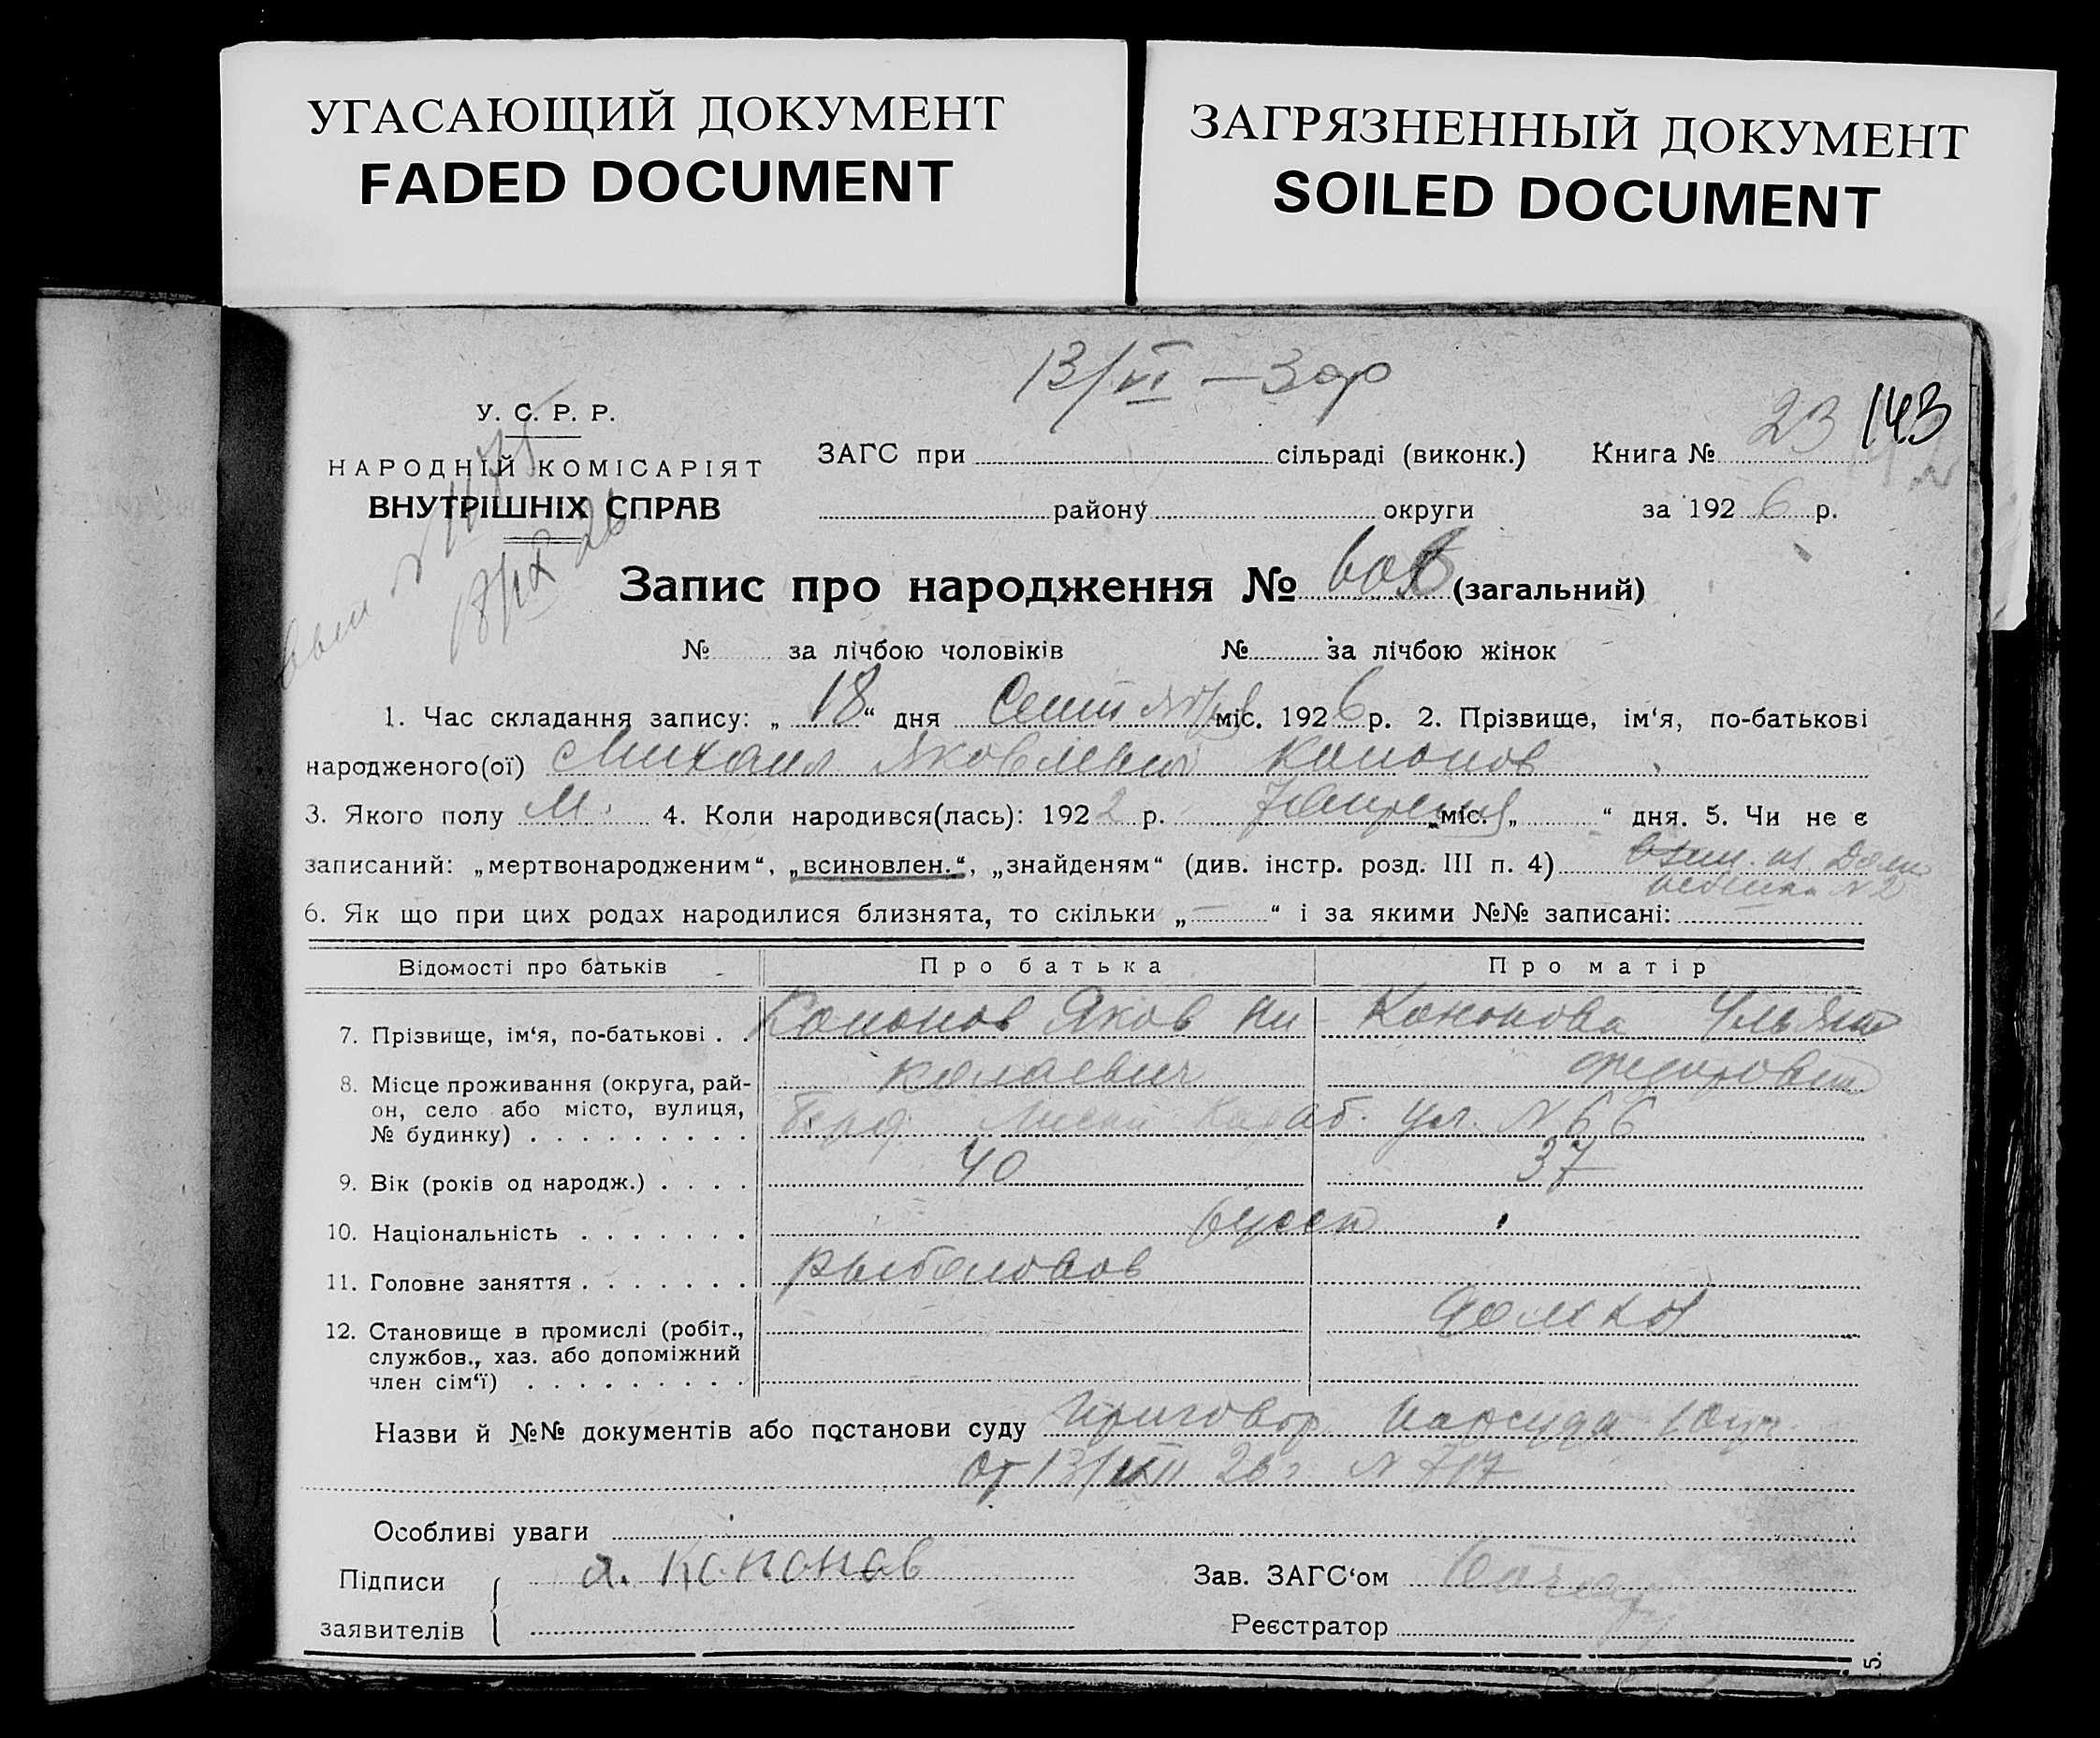 УГАСАЮЩИЙ ДОКУМЕНТ
FADED DOCUMENT
ЗАГРЯЗНЕННЫЙ ДОКУМЕНТ
SOILED DOCUMENT
13/VI
У. С. Р. Р.
НАРОДНІЙ КОМІСАРІЯТ
ВНУТРІШНІХ СПРАВ
18/IX 26
ЗАГС при сільраді (виконк.) Книга № 23 143
району округи за 1926 р.
Запис про народження № (загальний)
№ за лічбою чоловіків № за лічбою жінок
1. Час складання запису: „ 18 “ дня Сентября міс. 1926 р. 2. Прізвище, ім‘я, по-батькові
народженого(ої) Михаил Яковлевич Кононов
3. Якого полу М. 4. Коли народився(лась): 1922 р. 7 Апреля міс. „ “ дня. 5. Чи не є
записаний: „мертвонародженим“, „всиновлен.“, „знайденям“ (див. інстр. розд. III п. 4) взят. из Дома
ребенка № 2
6. Як що при цих родах народилися близнята, то скільки „ — “ і за якими №№ записані:
Відомості про батьків Про батька Про матір
7. Прізвище, ім‘я, по-батькові . . Кононов Яков Ни- Кононова Ульяна
колаевич Федоровна
8. Місце проживання (округа, рай-
он, село або місто, вулиця,
№ будинку) . . . . . . . . . ул. № 66
9. Вік (років од народж.) . . . . 40 37
10. Національність . . . . . . . русск
11. Головне заняття . . . . . . . рыболовов
12. Становище в промислі (робіт.,
службов., хаз. або допоміжний
член сім‘ї) . . . . . . . . . домхоз
Назви й №№ документів або постанови суду Приговор Нарсуда 10 уч.
от 13/VIII 26 г № 717
Особливі уваги
Підписи
заявителів
Я. Кононов
Зав. ЗАГС‘ом
Реєстратор
5.